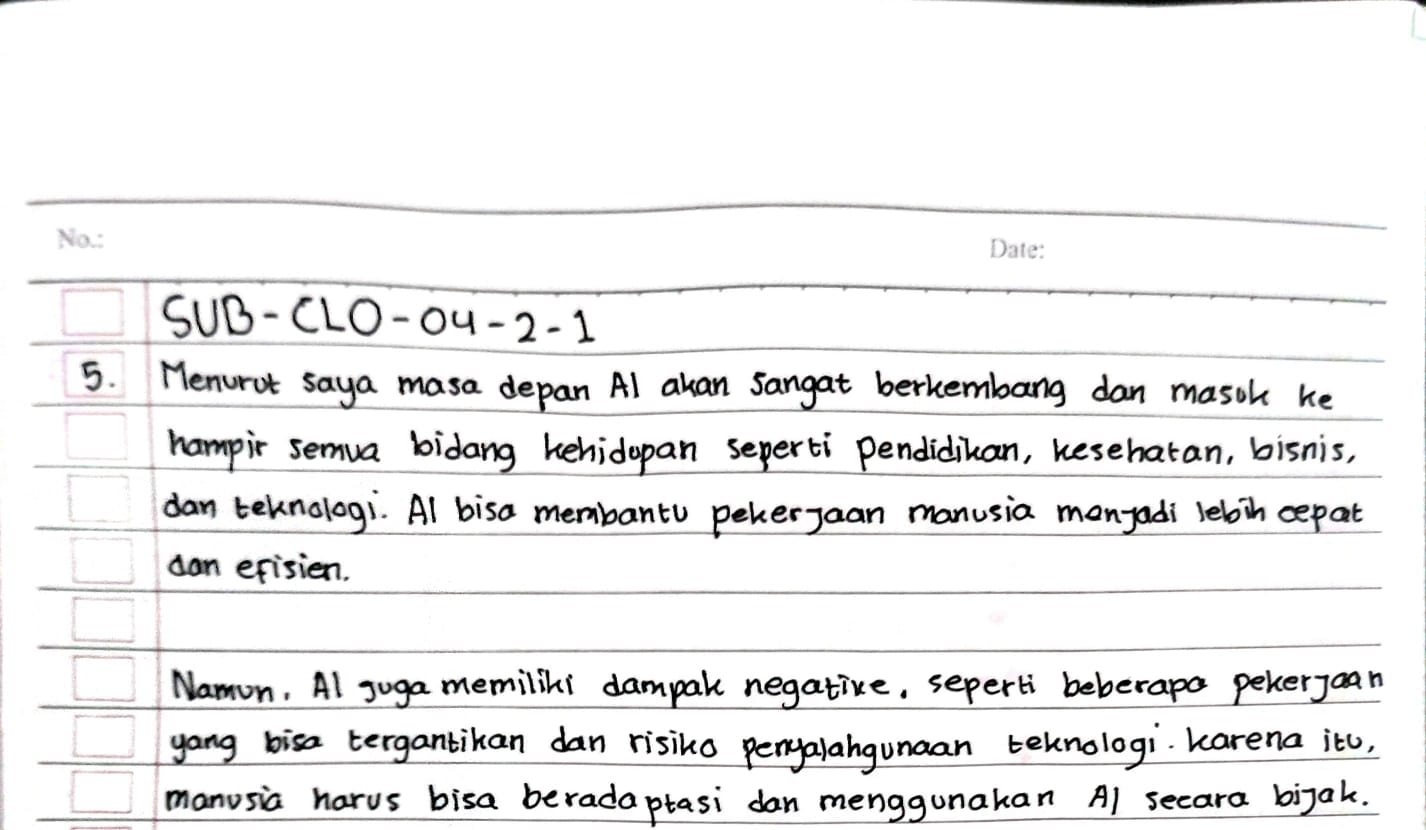 No.:
Date:
SUB-CLO-04-2-1
5. Menurut saya masa depan AI akan sangat berkembang dan masuk ke
hampir semua bidang kehidupan seperti pendidikan, kesehatan, bisnis,
dan teknologi. AI bisa membantu pekerjaan manusia menjadi lebih cepat
dan efisien.
Namun, AI juga memiliki dampak negative, seperti beberapa pekerjaan
yang bisa tergantikan dan risiko penyalahgunaan teknologi. karena itu,
manusia harus bisa beradaptasi dan menggunakan AI secara bijak.